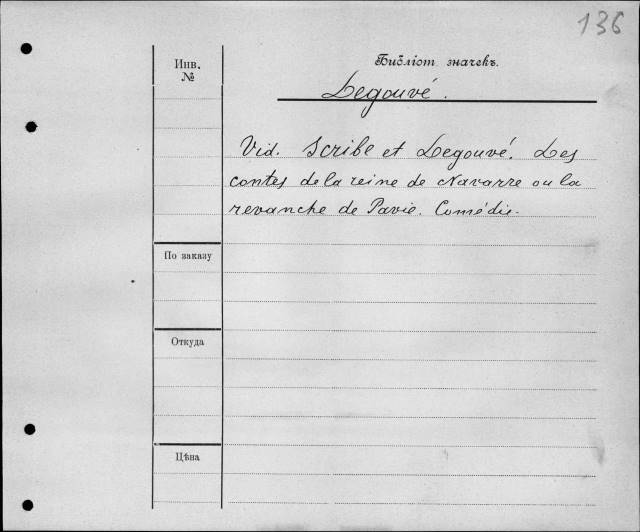 136
Инв.
№
Библіот. значекъ.
Legouvé.
Vid. Scribe et Legouvé. Les
contes de la reine de Navarre ou la
revanche de Pavie. Comédie.
По заказу
Откуда
Цѣна